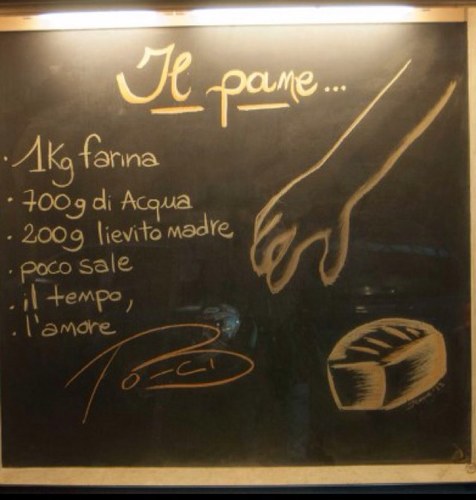 Il pane...
· 1Kg farina
· 700g di Acqua
· 200g lievito madre
· poco sale
· il tempo,
· l'amore